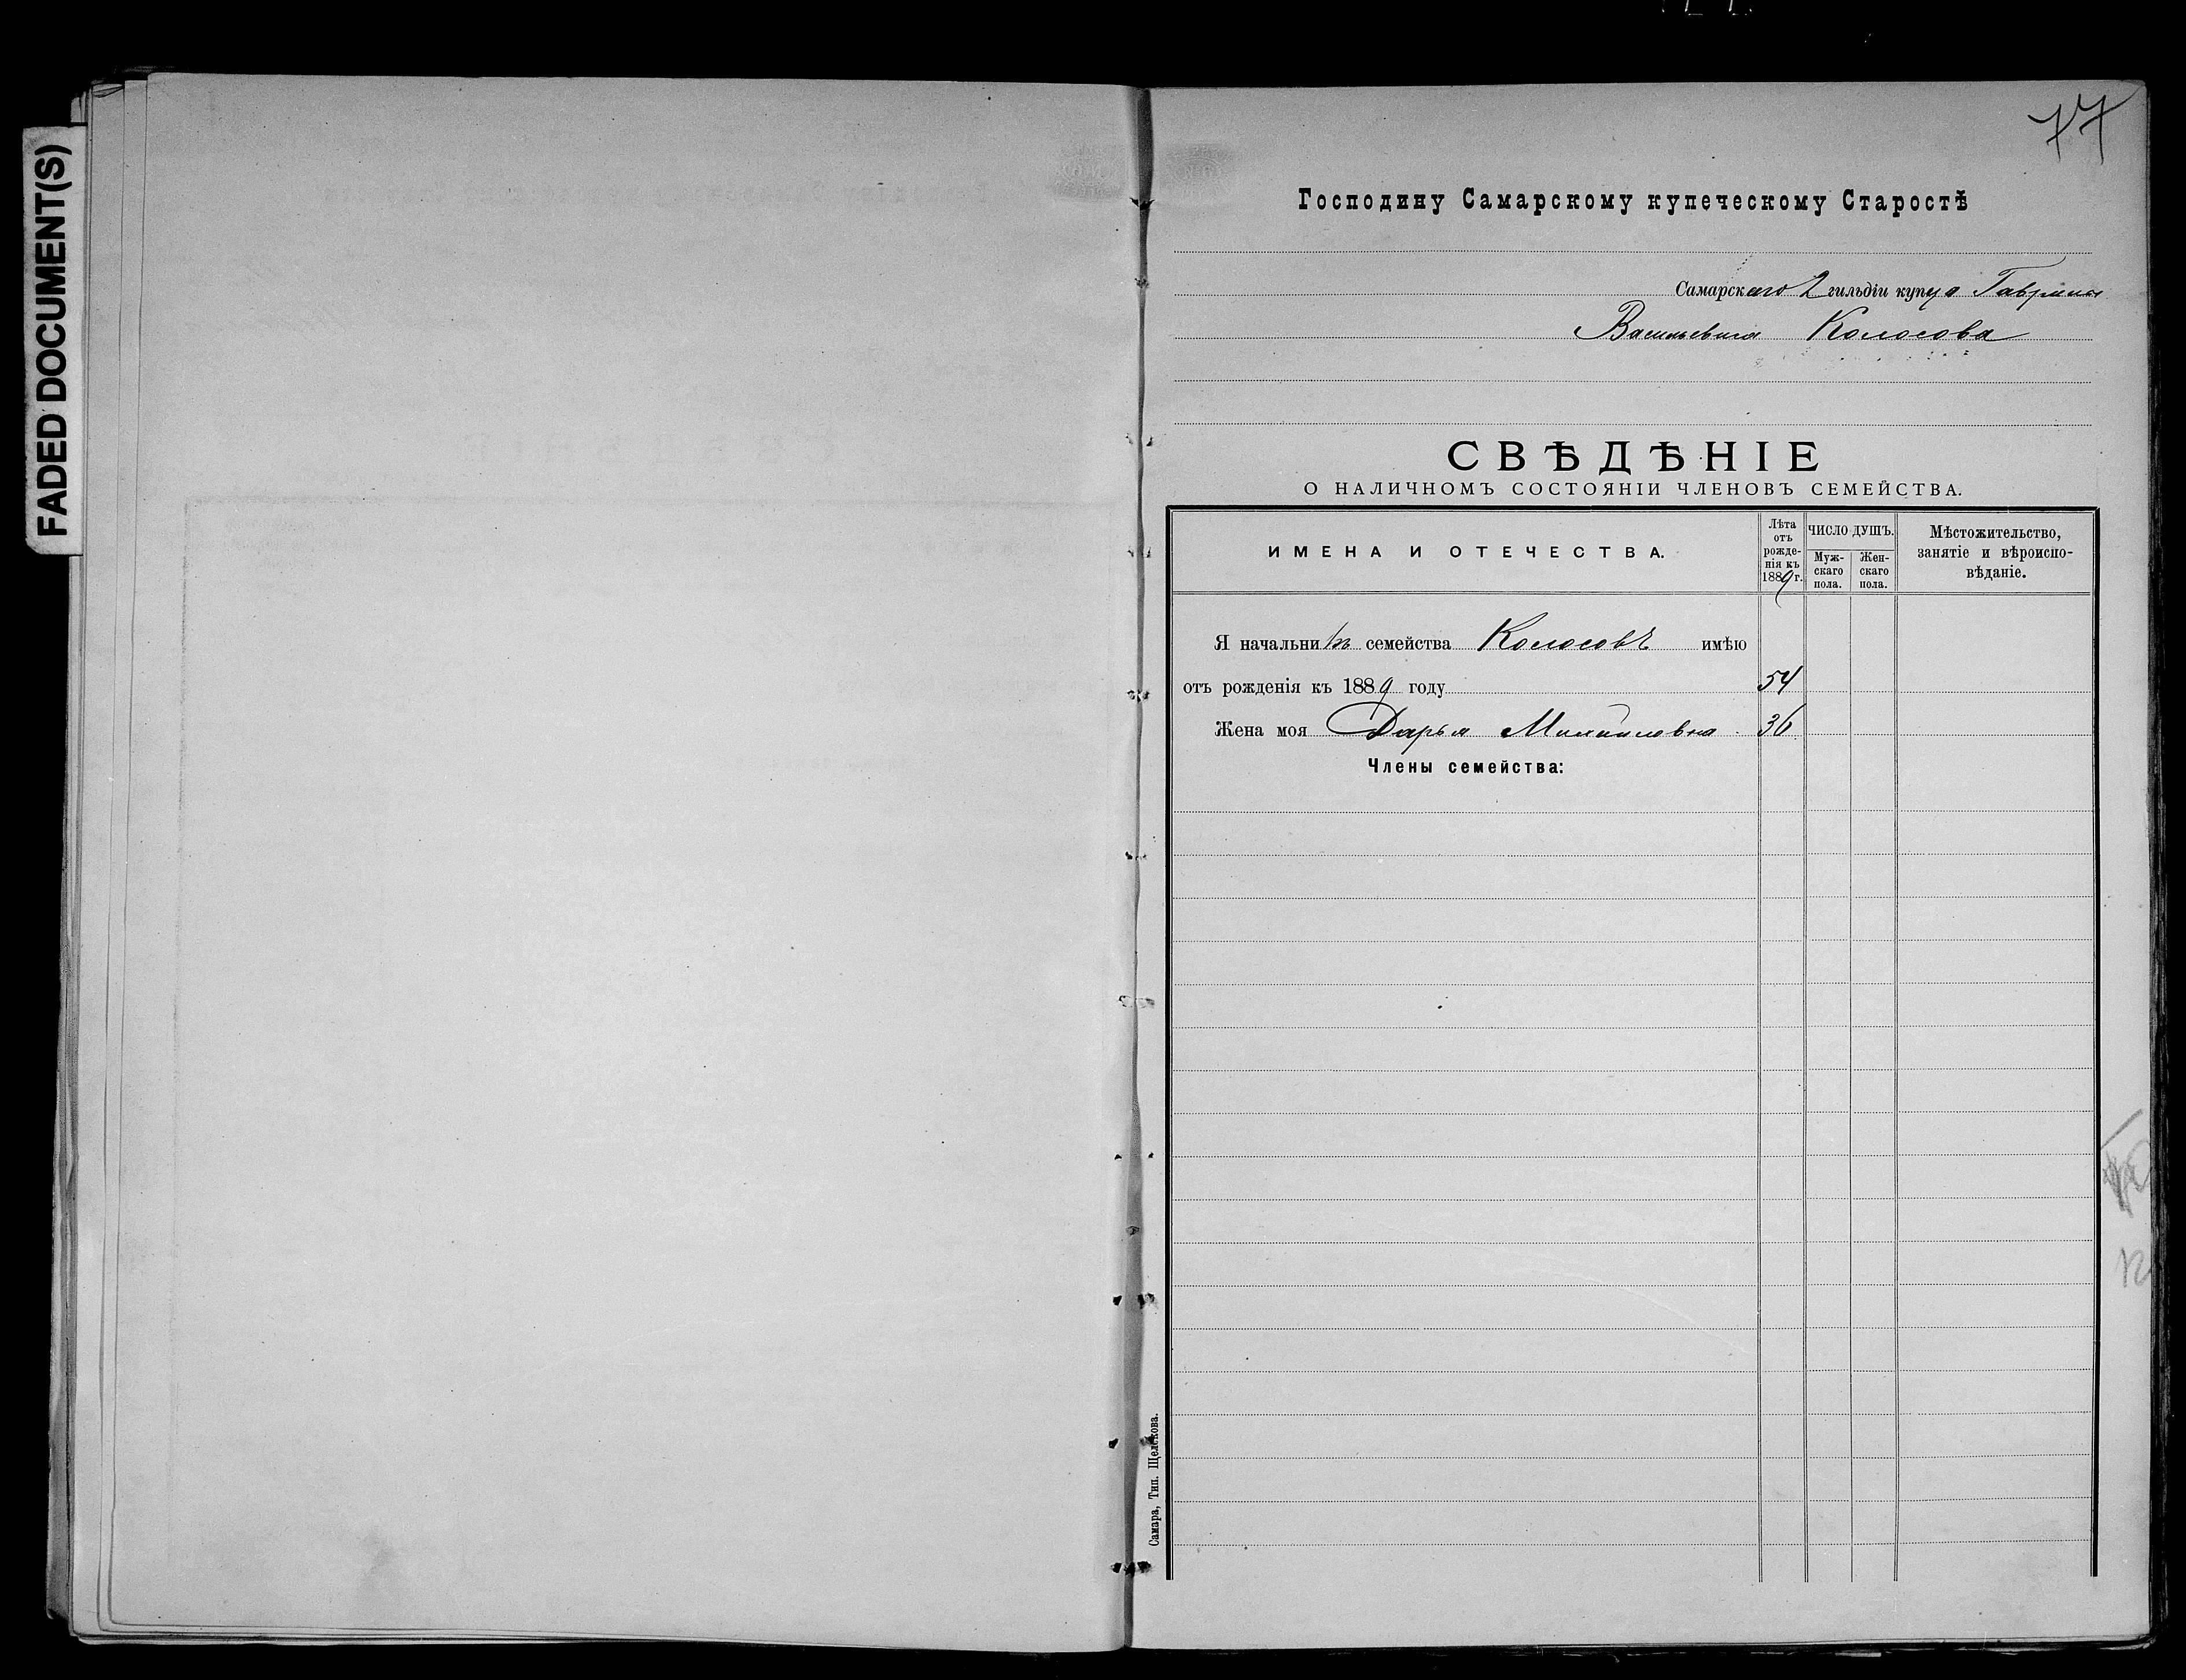 FADED DOCUMENT(S)
77
Господину Самарскому купеческому Старостѣ
Самарскаго 2 гильдіи купца Гаврила
Васильевича Колосова
СВѢДѢНІЕ
О НАЛИЧНОМЪ СОСТОЯНІИ ЧЛЕНОВЪ СЕМЕЙСТВА.
ИМЕНА И ОТЕЧЕСТВА.
Лѣта отъ рожде-нія къ 1889 г.
ЧИСЛО ДУШЪ.
Муж-скаго пола.
Жен-скаго пола.
Мѣстожительство, занятіе и вѣроиспо-вѣданіе.
Я начальникъ семейства Колосовъ имѣю
отъ рожденія къ 1889 году 54
Жена моя Дарья Михайловна 36
Члены семейства:
Самара, Тип. Щелокова.